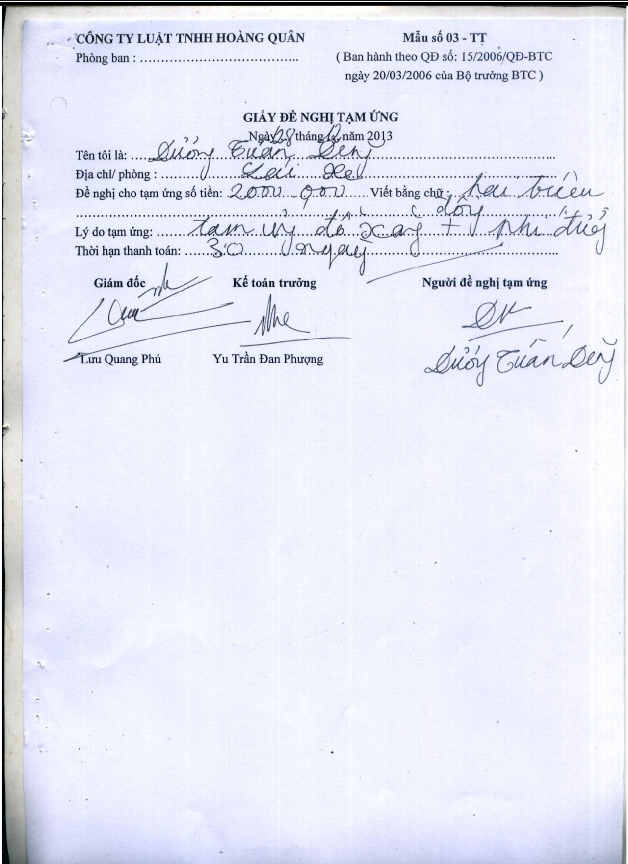 CÔNG TY LUẬT TNHH HOÀNG QUÂN
Mẫu số 03 - TT
Phòng ban : ........................................
( Ban hành theo QĐ số: 15/2006/QĐ-BTC
ngày 20/03/2006 của Bộ trưởng BTC )
GIẤY ĐỀ NGHỊ TẠM ỨNG
Ngày 28 tháng 12 năm 2013
Tên tôi là: Dương Tuấn
Địa chỉ/ phòng : Lái Xe
Đề nghị cho tạm ứng số tiền: 2000.000 Viết bằng chữ: hai triệu
đồng
Lý do tạm ứng: tạm ứng đổ xăng + phí đường
Thời hạn thanh toán: 30 ngày
Giám đốc Kế toán trưởng Người đề nghị tạm ứng
Lưu Quang Phú Yu Trần Đan Phượng Dương Tuấn